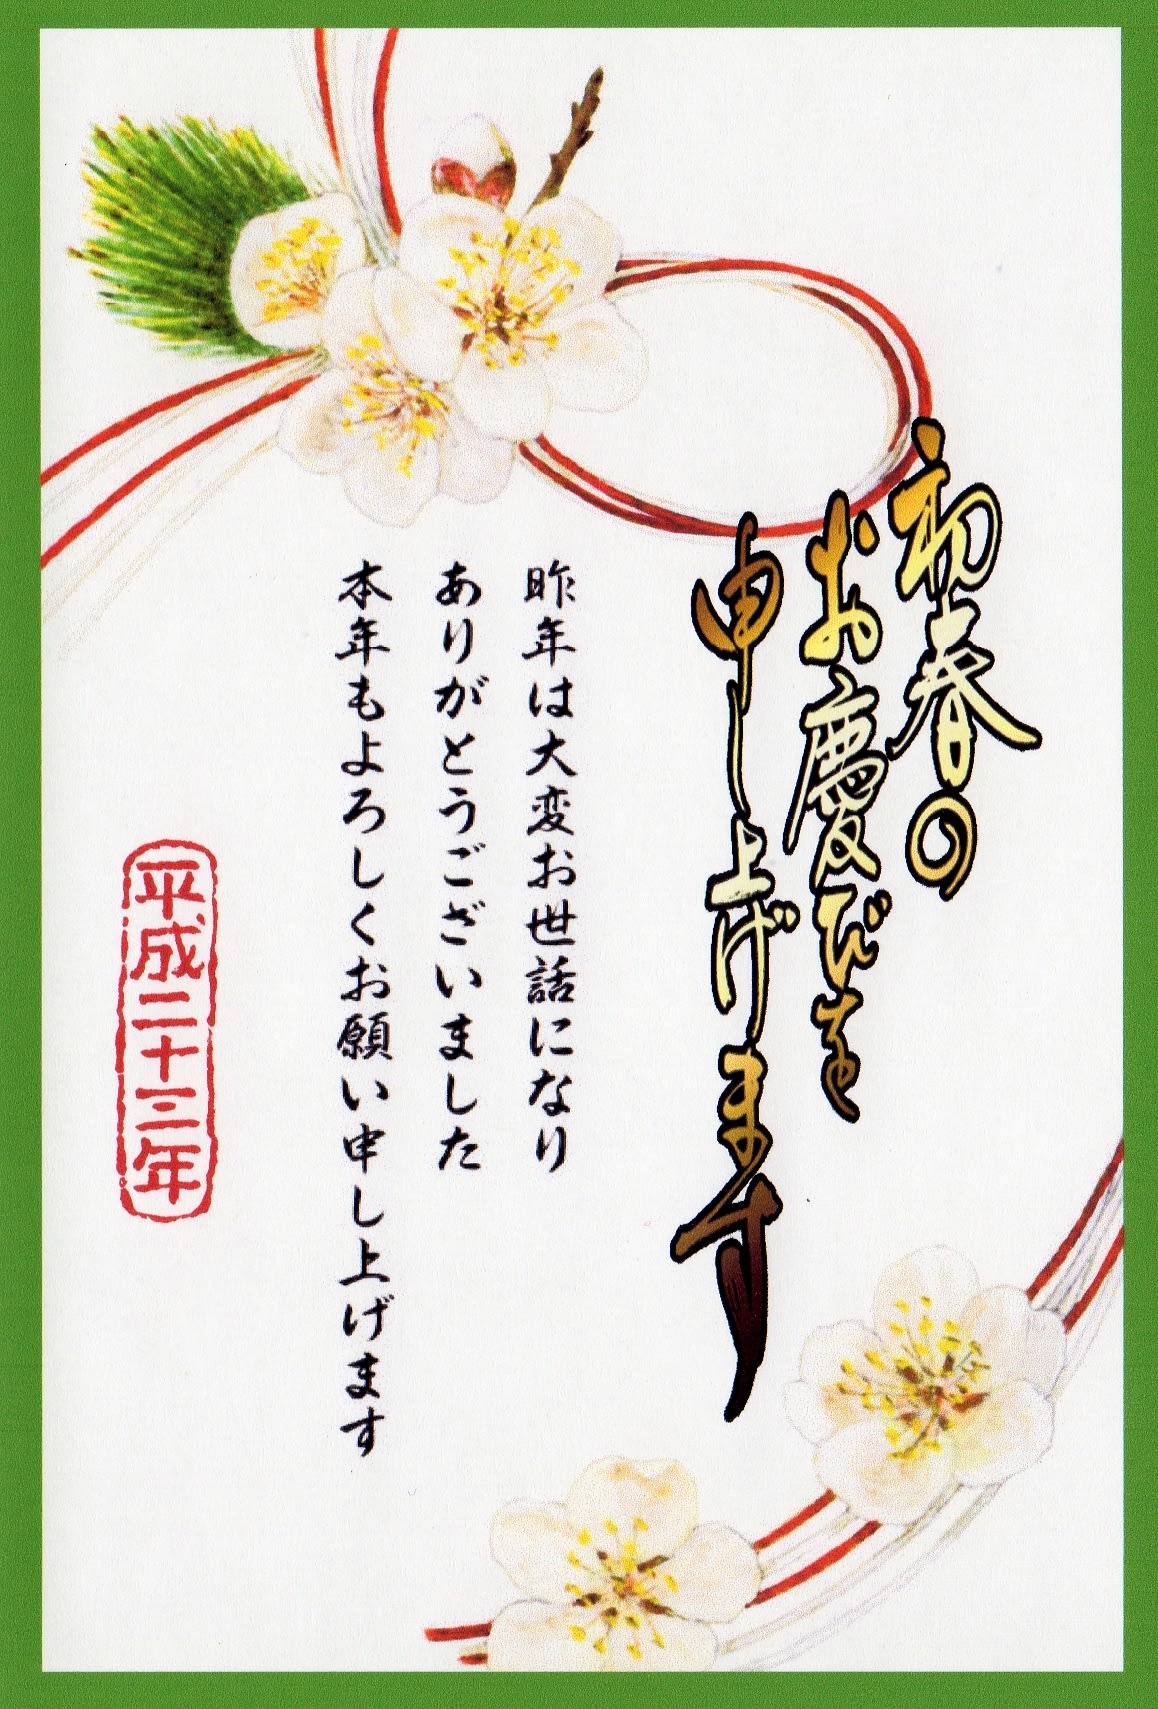 初春の
お慶びを
申し上げます
昨年は大変お世話になり
ありがとうございました
本年もよろしくお願い申し上げます
平成二十三年